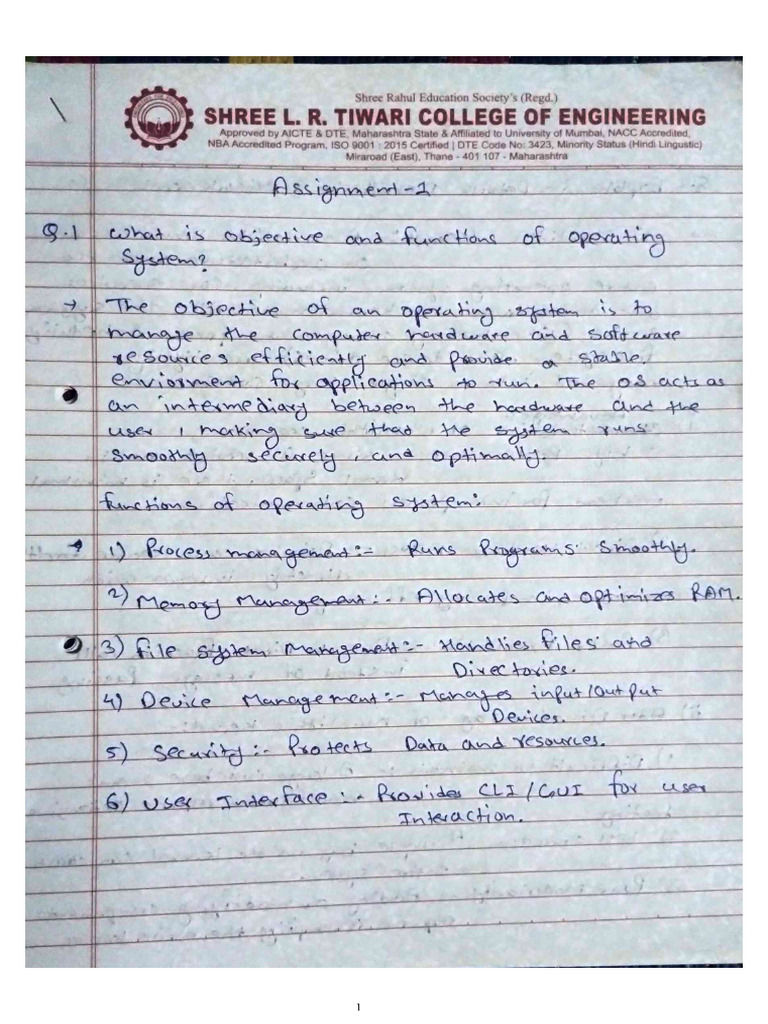 Shree Rahul Education Society's (Regd.)
SHREE L. R. TIWARI COLLEGE OF ENGINEERING
Approved by AICTE & DTE, Maharashtra State & Affiliated to University of Mumbai, NACC Accredited,
NBA Accredited Program, ISO 9001 : 2015 Certified | DTE Code No: 3423, Minority Status (Hindi Lingustic)
Miraroad (East), Thane - 401 107 - Maharashtra
Assignment-1
Q.1 What is objective and functions of operating
System?
→ The objective of an operating system is to
manage the computer hardware and software
resources efficiently and provide a stable
enviorment for applications to run. The OS acts as
an intermediary between the hardware and the
user, making sure that the system runs
smoothly securely, and optimally.
functions of operating system:
→ 1) Process management:- Runs Programs smoothly.
2) Memory Management:- Allocates and optimizes RAM.
3) file system Management:- Handlies files and
Directories.
4) Device Management:- Manages input/output
Devices.
5) Security:- Protects Data and resources.
6) User Interface:- Provides CLI/GUI for user
Interaction.
1